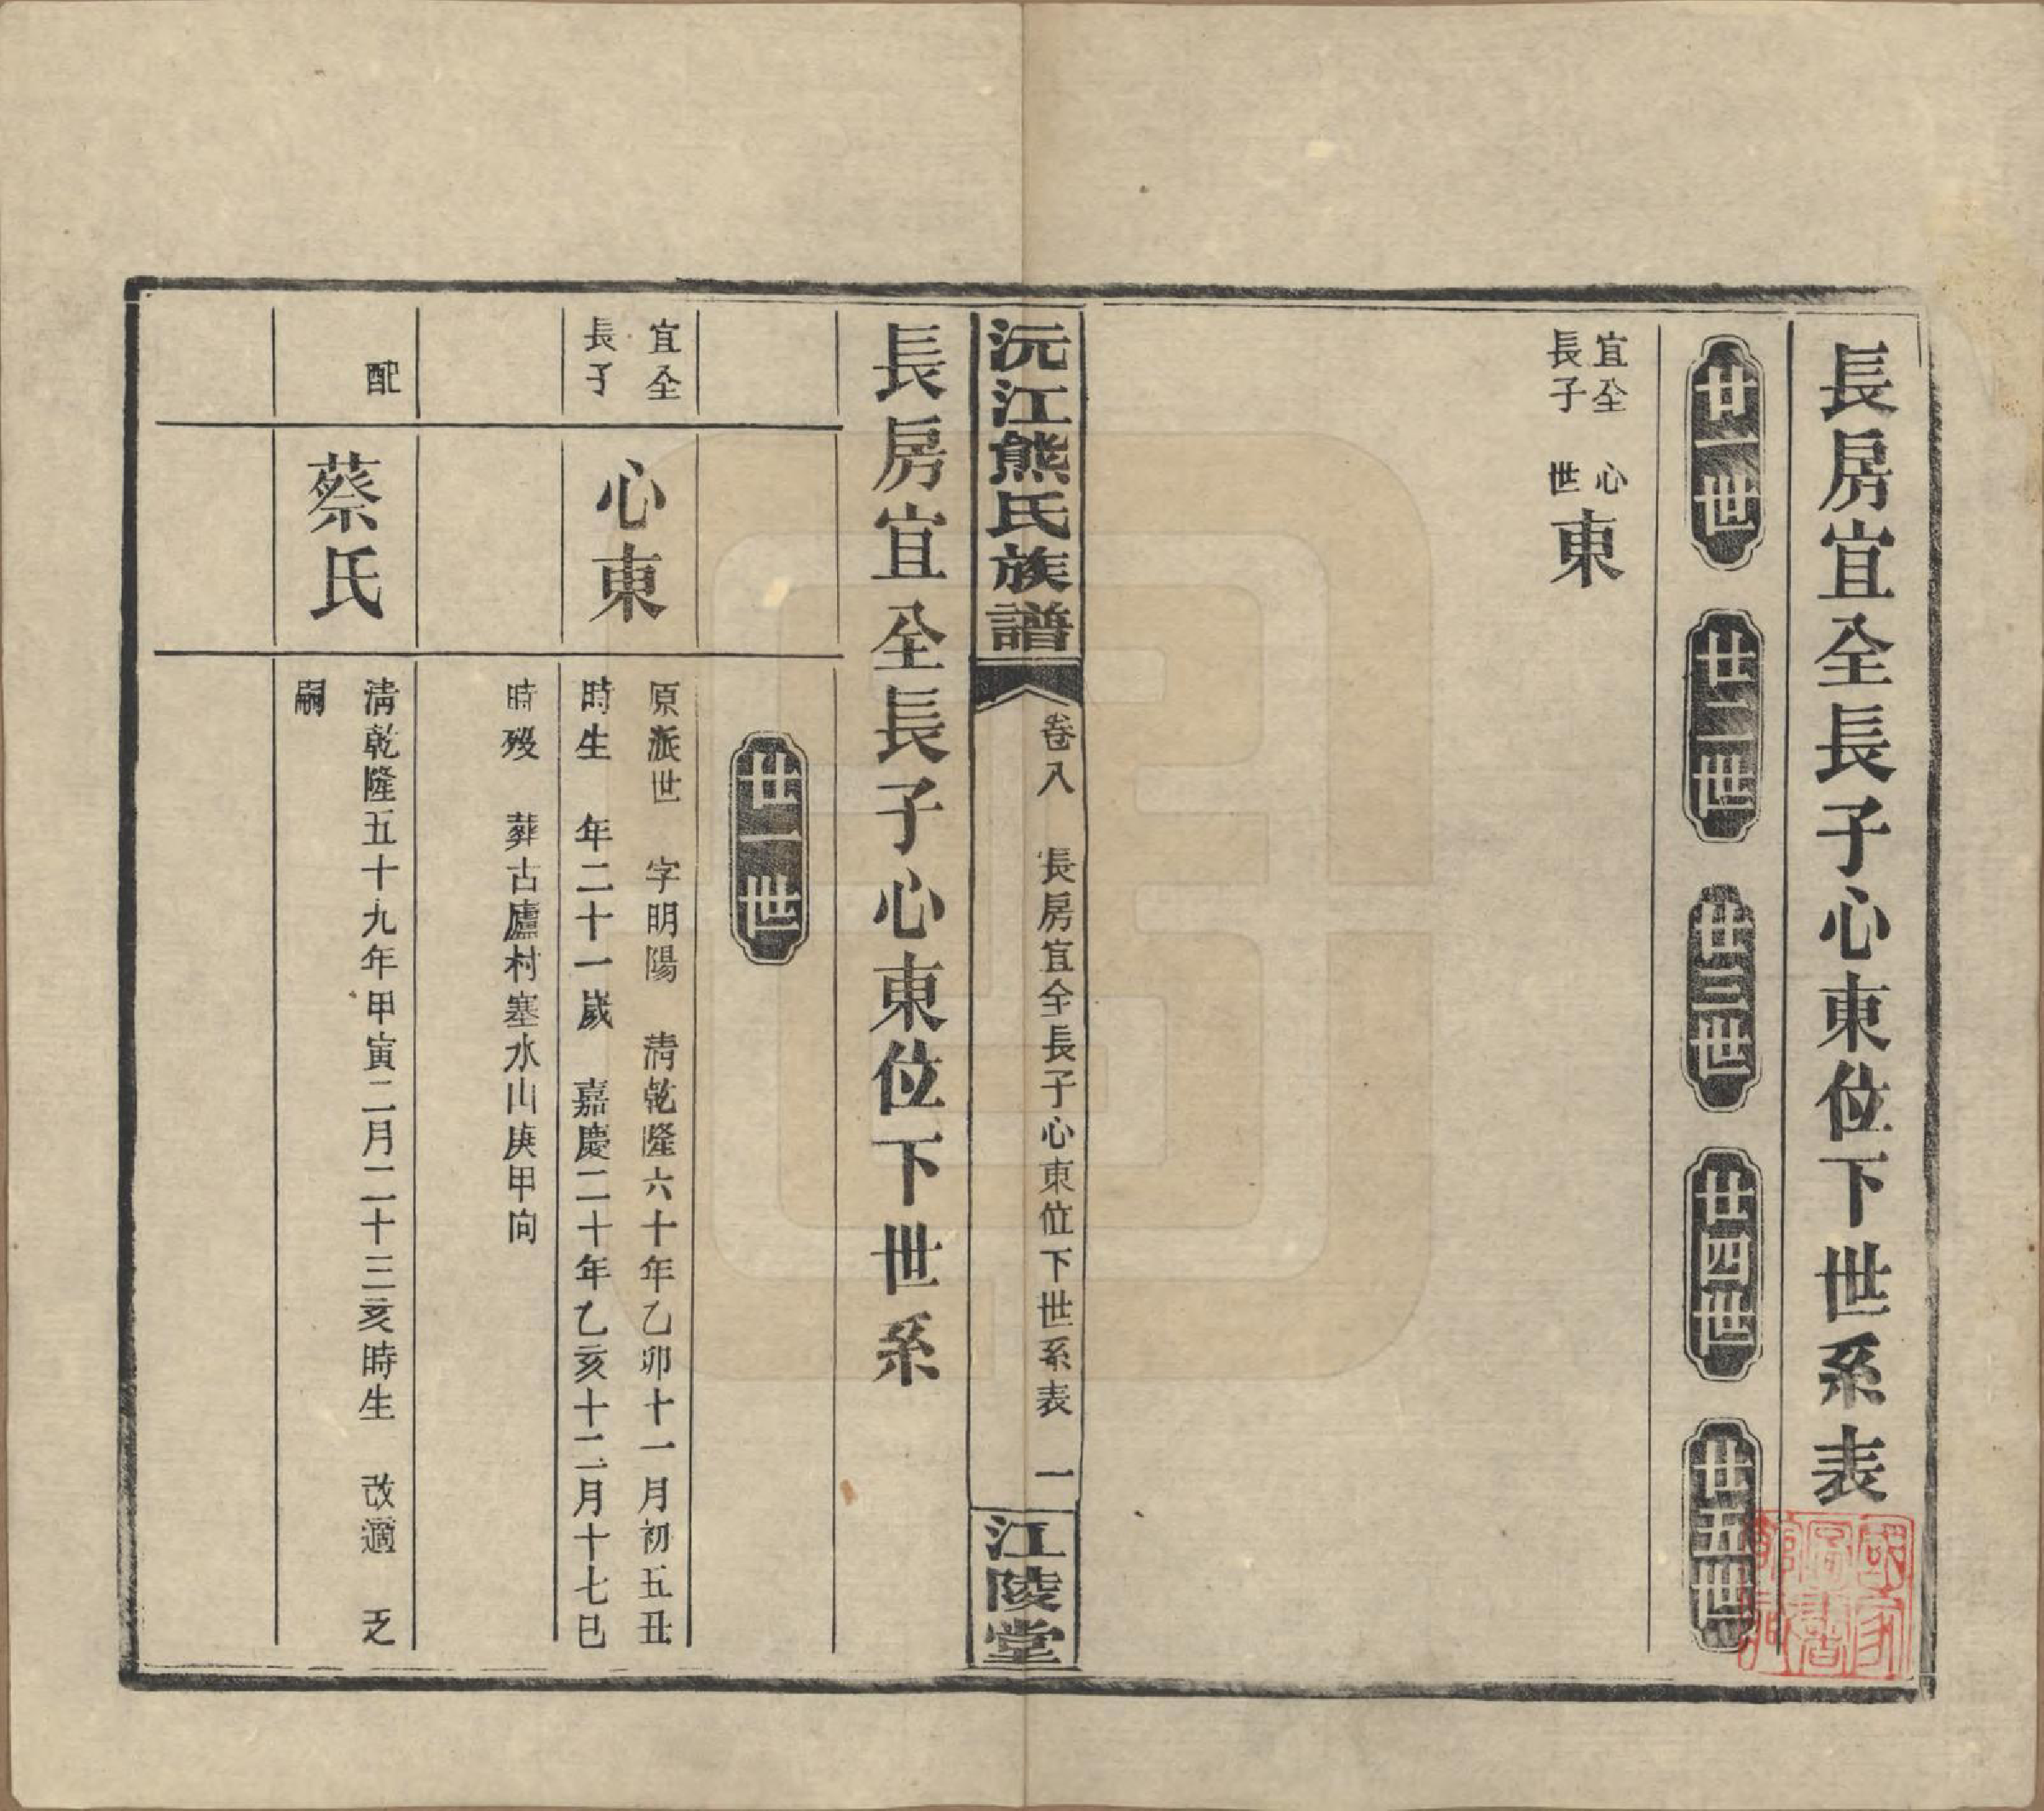 長房宜全長子心東位下世系表
廿一世
廿二世
廿三世
廿四世
廿五世
宜全
長子
心
世
東
沅江熊氏族譜
卷八　長房宜全長子心東位下世系表　一
江陵堂
長房宜全長子心東位下世系
廿一世
宜全
長子
心東
原派世　字明陽　清乾隆六十年乙卯十一月初五丑
時生　年二十一歲　嘉慶二十年乙亥十二月十七巳
時歿　葬古廬村塞水山庚甲向
配
蔡氏
清乾隆五十九年甲寅二月二十三亥時生　改適　乏
嗣
國家
圖書
館藏